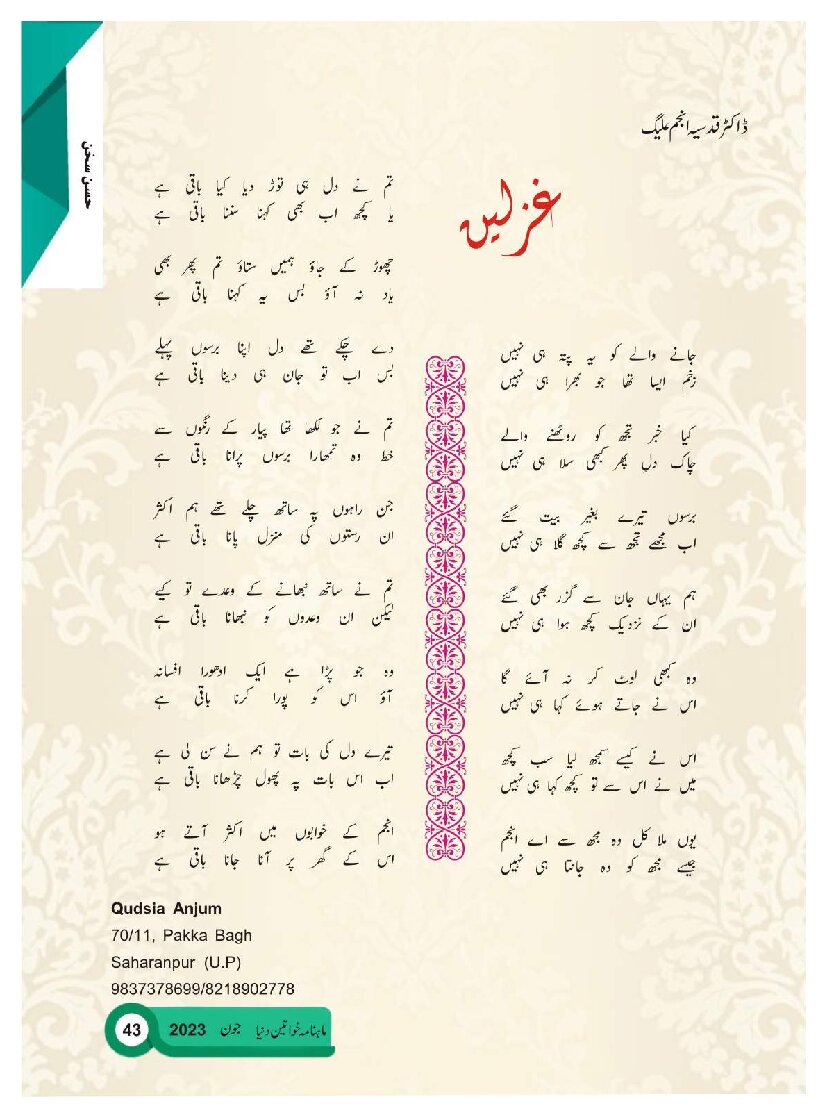 حسن سخن
ڈاکٹر قدسیہ انجم علیگ
غزلیں
جانے والے کو یہ پتہ ہی نہیں
زخم ایسا تھا جو بھرا ہی نہیں
کیا خبر تجھ کو روٹھنے والے
چاک دل پھر کبھی سلا ہی نہیں
برسوں تیرے بغیر بیت گئے
اب مجھے تجھ سے کچھ گلا ہی نہیں
ہم یہاں جان سے گزر بھی گئے
ان کے نزدیک کچھ ہوا ہی نہیں
وہ کبھی لوٹ کر نہ آئے گا
اس نے جاتے ہوئے کہا ہی نہیں
اس نے کیسے سمجھ لیا سب کچھ
میں نے اس سے تو کچھ کہا ہی نہیں
یوں ملا کل وہ مجھ سے اے انجم
جیسے مجھ کو وہ جانتا ہی نہیں
تم نے دل ہی توڑ دیا کیا باقی ہے
یا کچھ اب بھی کہنا سننا باقی ہے
چھوڑ کے جاؤ ہمیں ستاؤ تم پھر بھی
یاد نہ آؤ بس یہ کہنا باقی ہے
دے چکے تھے دل اپنا برسوں پہلے
بس اب تو جان ہی دینا باقی ہے
تم نے جو لکھا تھا پیار کے رنگوں سے
خط وہ تمھارا برسوں پرانا باقی ہے
جن راہوں پہ ساتھ چلے تھے ہم اکثر
ان رستوں کی منزل پانا باقی ہے
تم نے ساتھ نبھانے کے وعدے تو کیے
لیکن ان وعدوں کو نبھانا باقی ہے
وہ جو پڑا ہے ایک ادھورا افسانہ
آؤ اس کو پورا کرنا باقی ہے
تیرے دل کی بات تو ہم نے سن لی ہے
اب اس بات پہ پھول چڑھانا باقی ہے
انجم کے خوابوں میں اکثر آتے ہو
اس کے گھر پر آنا جانا باقی ہے
Qudsia Anjum
70/11, Pakka Bagh
Saharanpur (U.P)
9837378699/8218902778
ماہنامہ خواتین دنیا جون 2023 43